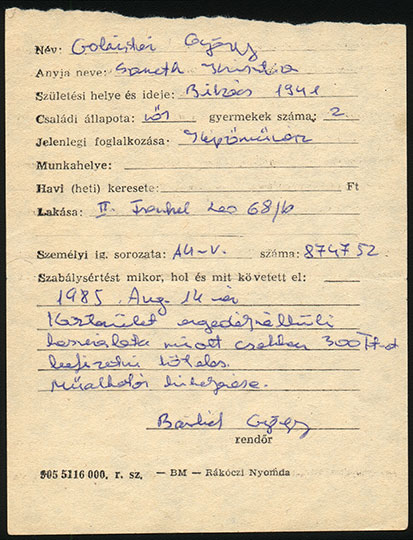 Név: Galántai György
Anyja neve: Krisztina
Születési helye és ideje: Bikács 1941
Családi állapota: nős gyermekek száma: 2.
Jelenlegi foglalkozása: Képzőművész
Munkahelye:
Havi (heti) keresete: Ft
Lakása: II. Frankel Leo 68/b
Személyi ig. sorozata: AU-V. száma: 874752
Szabálysértést mikor, hol és mit követett el:
1985. Aug. 14-én
Közterület engedélynélküli
használata miatt csekken 300 Ft-ot
befizetni köteles.
Műalkotás
György
rendőr
905 5116 000. r. sz. — BM — Rákóczi Nyomda